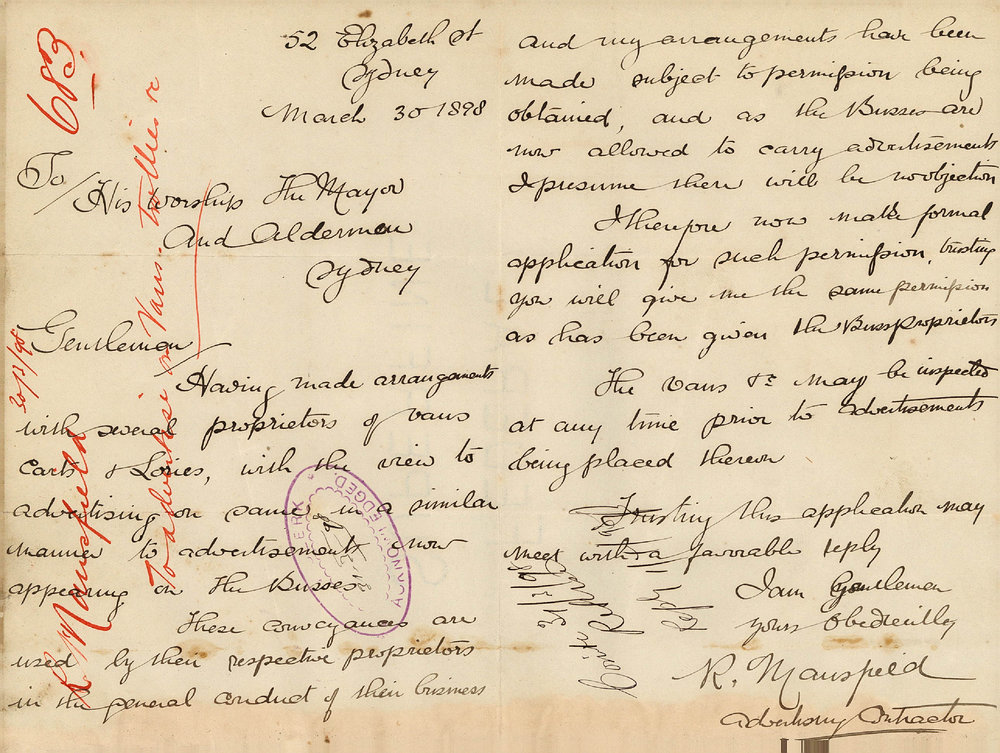 52 Elizabeth St
Sydney
March 30 1898
To/
His worship The Mayor
And Aldermen
Sydney
Gentlemen
Having made arrangements
with several proprietors of vans
Carts & Lories, with the view to
advertising on same in a similar
manner to advertisements now
appearing on the Busses
These conveyances are
used by their respective proprietors
in the general conduct of their business
and my arrangements have been
made subject to permission being
obtained, and as the Busses are
now allowed to carry advertisements
I presume there will be no objection
I therefore now make formal
application for such permission, trusting
you will give me the same permission
as has been given the Buss Proprietors
The vans &c may be inspected
at any time prior to advertisements
being placed thereon
Trusting this application may
meet with a favorable reply
I am Gentlemen
yours Obediently
R. Mansfield
Advertising Contractor
683
30/3/98
R Mansfield
To advertise on Vans - trollies &c
CLERK
31-3-98
ACKNOWLEDGED
31/3/98